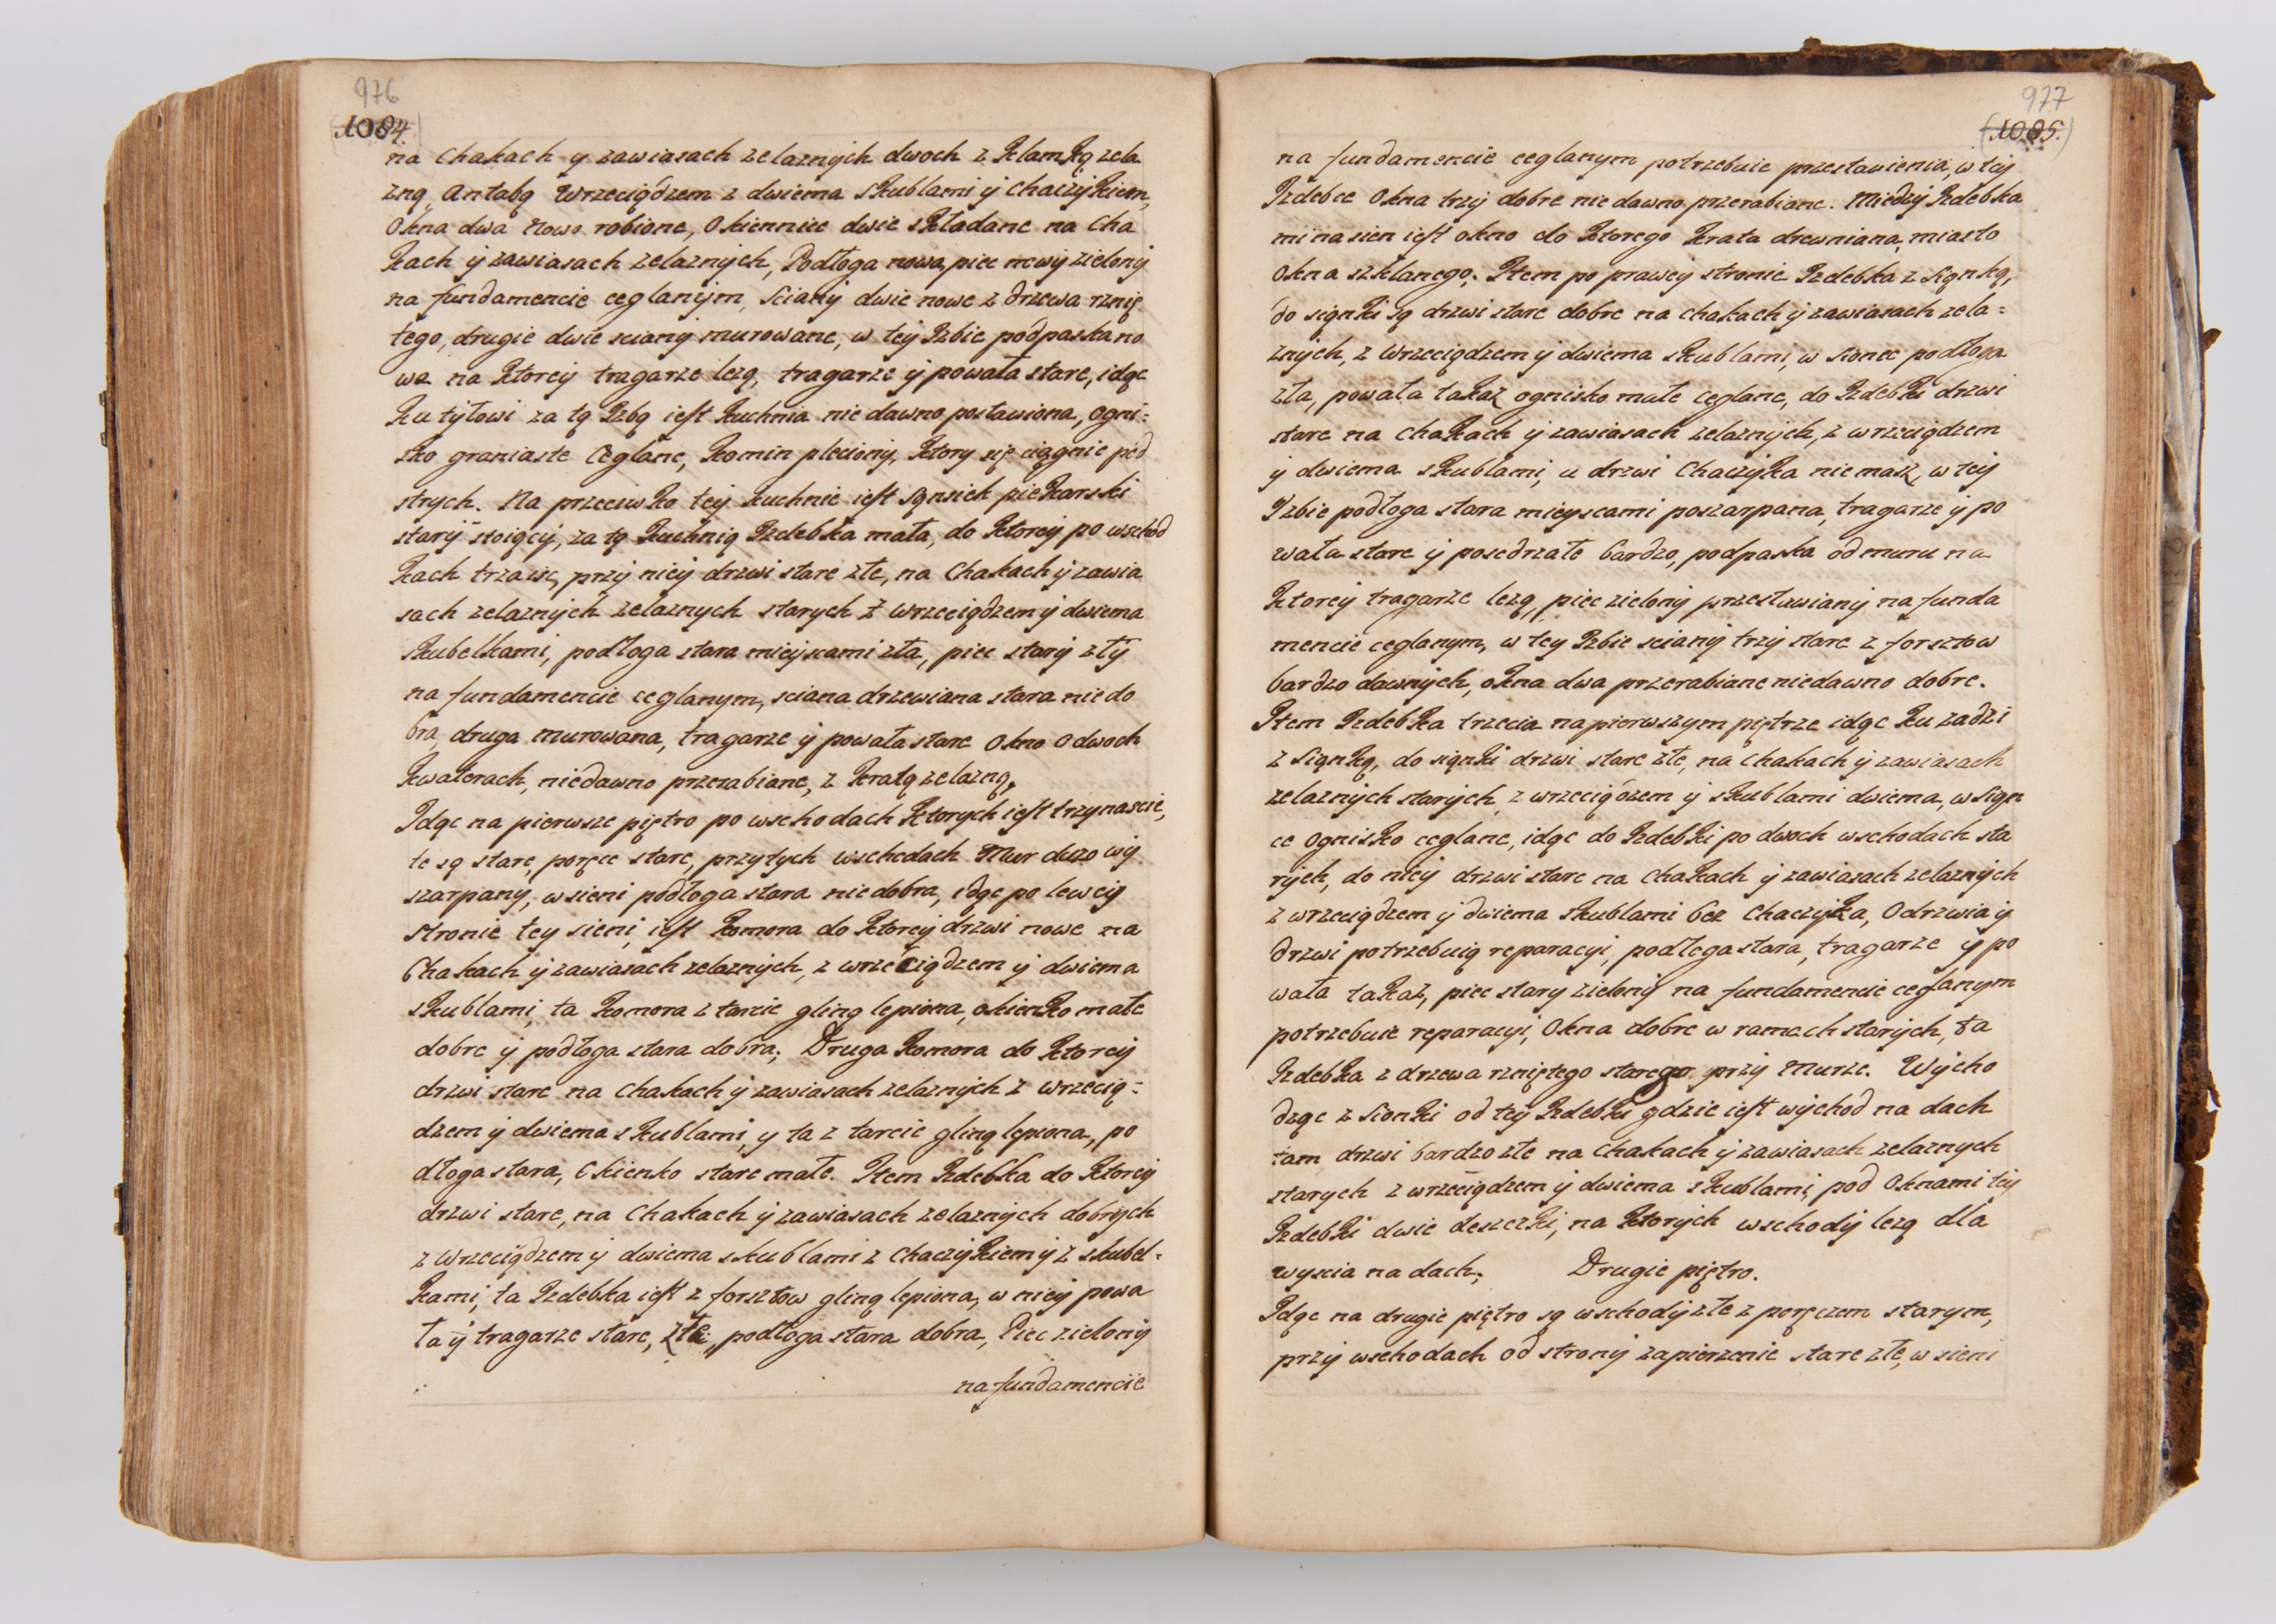 976
1084.
na chakach y zawiasach zelaznych dwoch z klamką zela
zną, Antabą wrzeciądzem z dwiema skublami y chaczykiem,
Okna dwa nowo robione, Okiennice dwie składane na cha
kach y zawiasach zelaznych, Podłoga nowa, piec nowy zielony
na fundamencie ceglanym, sciany dwie nowe z drzewa rznię
tego, drugie dwie sciany murowane, w tey Izbie podpaska no
wa na ktorey tragarze lezą, tragarze y powała stare, idąc
ku tyłowi za tą Izbą iest kuchnia nie dawno postawiona, ogni=
sko graniaste ceglane, komin pleciony, ktory się ciągnie pod
strych. Na przeciwko tey kuchnie iest sąnsiek piekarski
stary stoiący, za tą kuchnią Izdebka mała, do ktorey po wschod
kach trzaisc, przy niey drzwi stare złe, na chakach y zawia
sach zelaznych zelaznych starych z wrzeciądzem y dwiema
skubelkami, podłoga stara mieyscami zła, piec stary zły
na fundamencie ceglanym, sciana drzewiana stara nie do
bra, druga murowana, tragarze y powała stare okno o dwoch
kwaterach, niedawno przerabiane, z kratą zelazną.
Idąc na pierwsze piętro po wschodach ktorych iest trzynascie,
te są stare, poręcie stare, przytych wschodach Mur duzo wy
szarpany, w sieni podłoga stara niedobra, idąc po lewey
stronie tey sieni, iest komora do ktorey drzwi nowe na
Chakach y zawiasach zelaznych, z wrzeciądzem y dwiema
skublami, ta komora z tarcic gliną lepiona, okienko małe
dobre y podłoga stara dobra; Druga komora do ktorey
drzwi stare na chakach y zawiasach zelaznych z wrzecią=
dzem y dwiema skublami, y ta z tarcic gliną lepiona, po
dłoga stara, Okienko stare małe. Item Izdebka do ktorey
drzwi stare, na chakach y zawiasach zelaznych dobrych
z wrzeciądzem y dwiema skublami z chaczykiem y z skubel=
kami, ta Izdebka iest z forsztow gliną lepiona, w niey powa
ła y tragarze stare, złe, podłoga stara dobra, Piec zielony
na fundamencie
977
(1085.)
na fundamencie ceglanym potrzebuie przestawienia, w tey
Izdebce Okna trzy dobre nie dawno przerabiane. Miedzy Izdebka
mi na sien iest okno do ktorego krata drewniana, miasto
okna szklanego. Item po prawey stronie Izdebka z sięnką,
do sięnki są drzwi stare dobre na chakach y zawiasach zela=
znych, z wrzeciądzem y dwiema skublami, w sionce podłoga
zła, powała takaz ognisko małe ceglane, do Izdebki drzwi
stare na chakach y zawiasach zelaznych, z wrzeciądzem
y dwiema skublami, u drzwi chaczyka nie masz, w tey
Izbie podłoga stara mieyscami poszarpana, tragarze y po
wała stare y posedrzałe bardzo, podpaska od muru na
ktorey tragarze lezą, piec zielony przestawiany na funda
mencie ceglanym, w tey Izbie sciany trzy stare z forsztow
bardzo dawnych, okna dwa przerabiane niedawno dobre.
Item Izdebka trzecia na pierwszym piętrze idąc ku zadzi
z sięnką, do sięnki drzwi stare złe, na chakach y zawiasach
zelaznych starych, z wrzeciądzem y skublami dwiema, w sięn
ce ognisko ceglane, idąc do Izdebki po dwoch wschodach sta
rych, do niey drzwi stare na chakach y zawiasach zelaznych
z wrzeciądzem y dwiema skublami bez chaczyka, Odrzwia y
drzwi potrzebuią reparacyi, podłoga stara, tragarze y po
wała takaz, piec stary zielony na fundamencie ceglanym
potrzebuie reparacyi, Okna dobre w ramach starych, ta
Izdebka z drzewa rzniętego starego przy Murze. Wycho
dząc z sionki od tey Izdebki gdzie iest wychod na dach
tam drzwi bardzo złe na chakach y zawiasach zelaznych
starych z wrzeciądzem y dwiema skublami, pod Oknami tey
Izdebki dwie deszczki, na ktorych wschody lezą dla
wyscia na dach. Drugie piętro.
Idąc na drugie piętro są wschody złe z poręczem starym,
przy wschodach od strony zapierzenie stare złe, w sieni